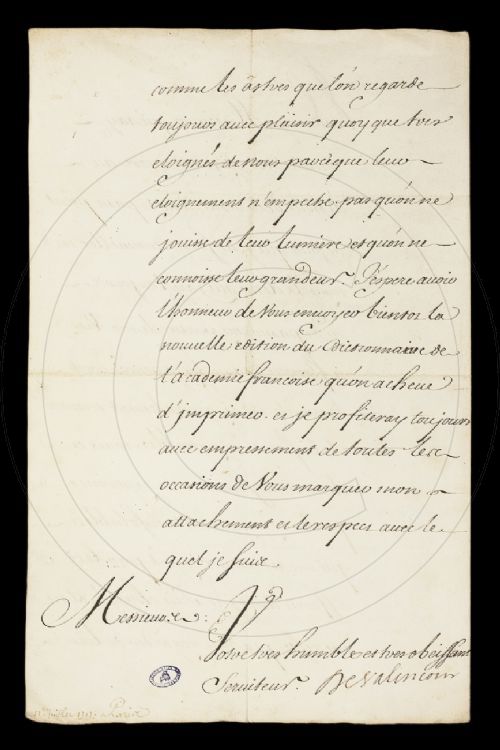 comme les astres que l'on regarde
toujours avec plaisir quoy que tres
eloignés de nous parceque leur
eloignement n'empeche pas qu'on ne
jouisse de leur lumiere et qu'on ne
connoisse leur grandeur. J'espere avoir
l'honneur de Vous envoyer bientost la
nouvelle edition du dictionnaire de
l'academie francoise qu'on acheve
d'imprimer. et je profiteray toujours
avec empressement de toutes les
occasions de Vous marquer mon
attachement et le respect avec le
quel je suis.
Messieurs:
Votre tres humble et tres obeissant
Serviteur. De Valincour
juillet à Paris